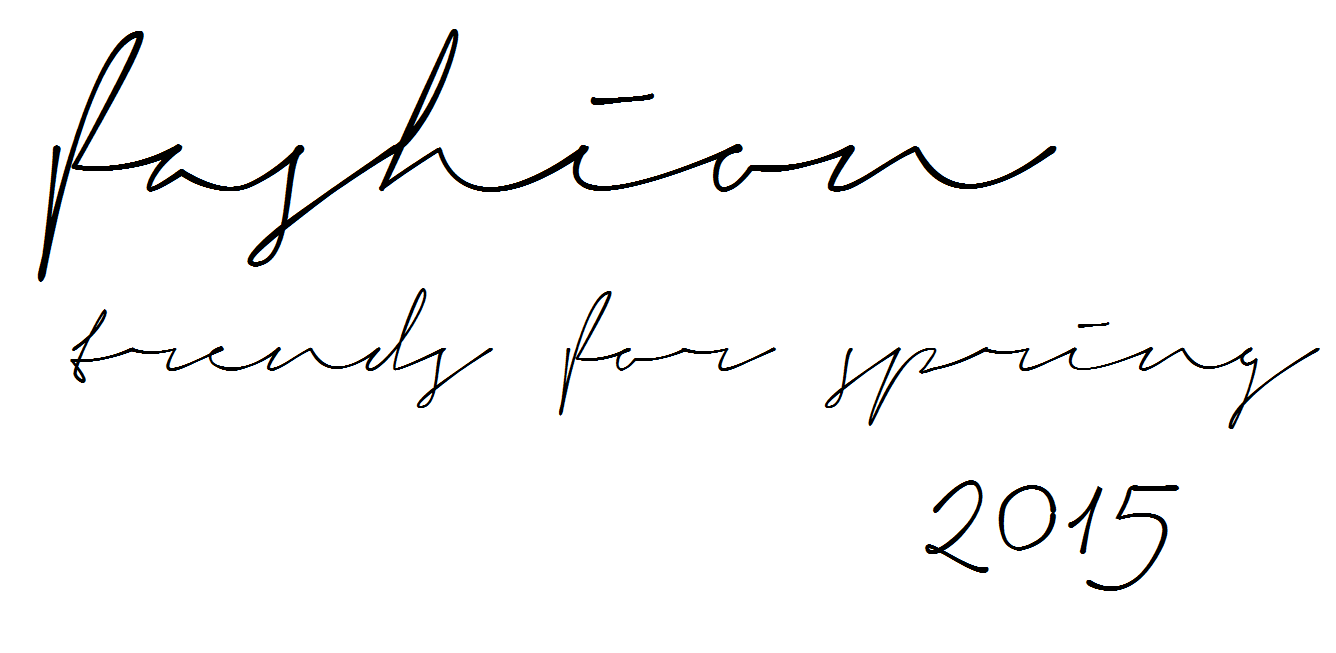 fashion
trends for spring
2015